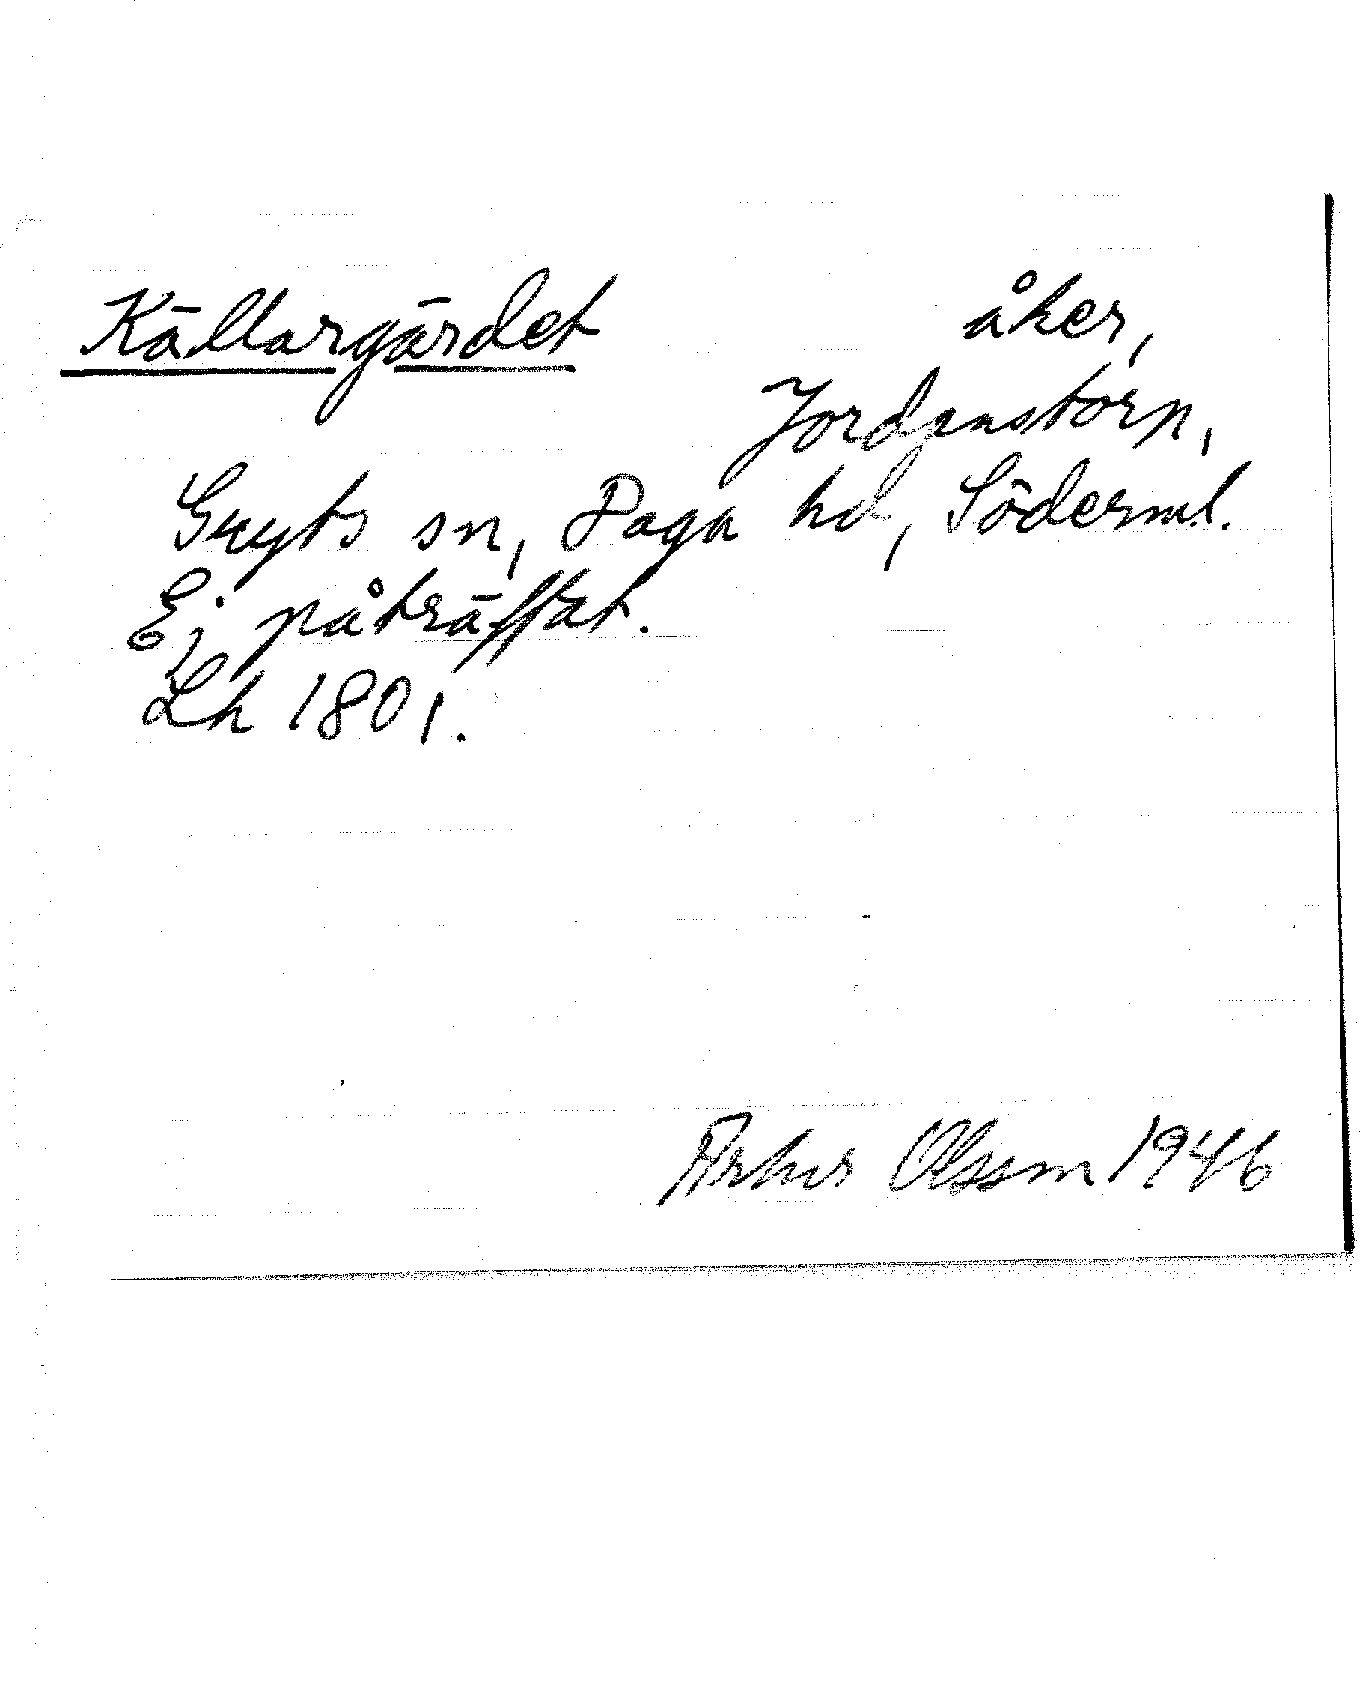 Källargärdet åker,
Jordanstorp,
Gryts sn, Daga hd, Söderml.
Ej påträffat.
Lh 1801.
Artur Olsson 1946